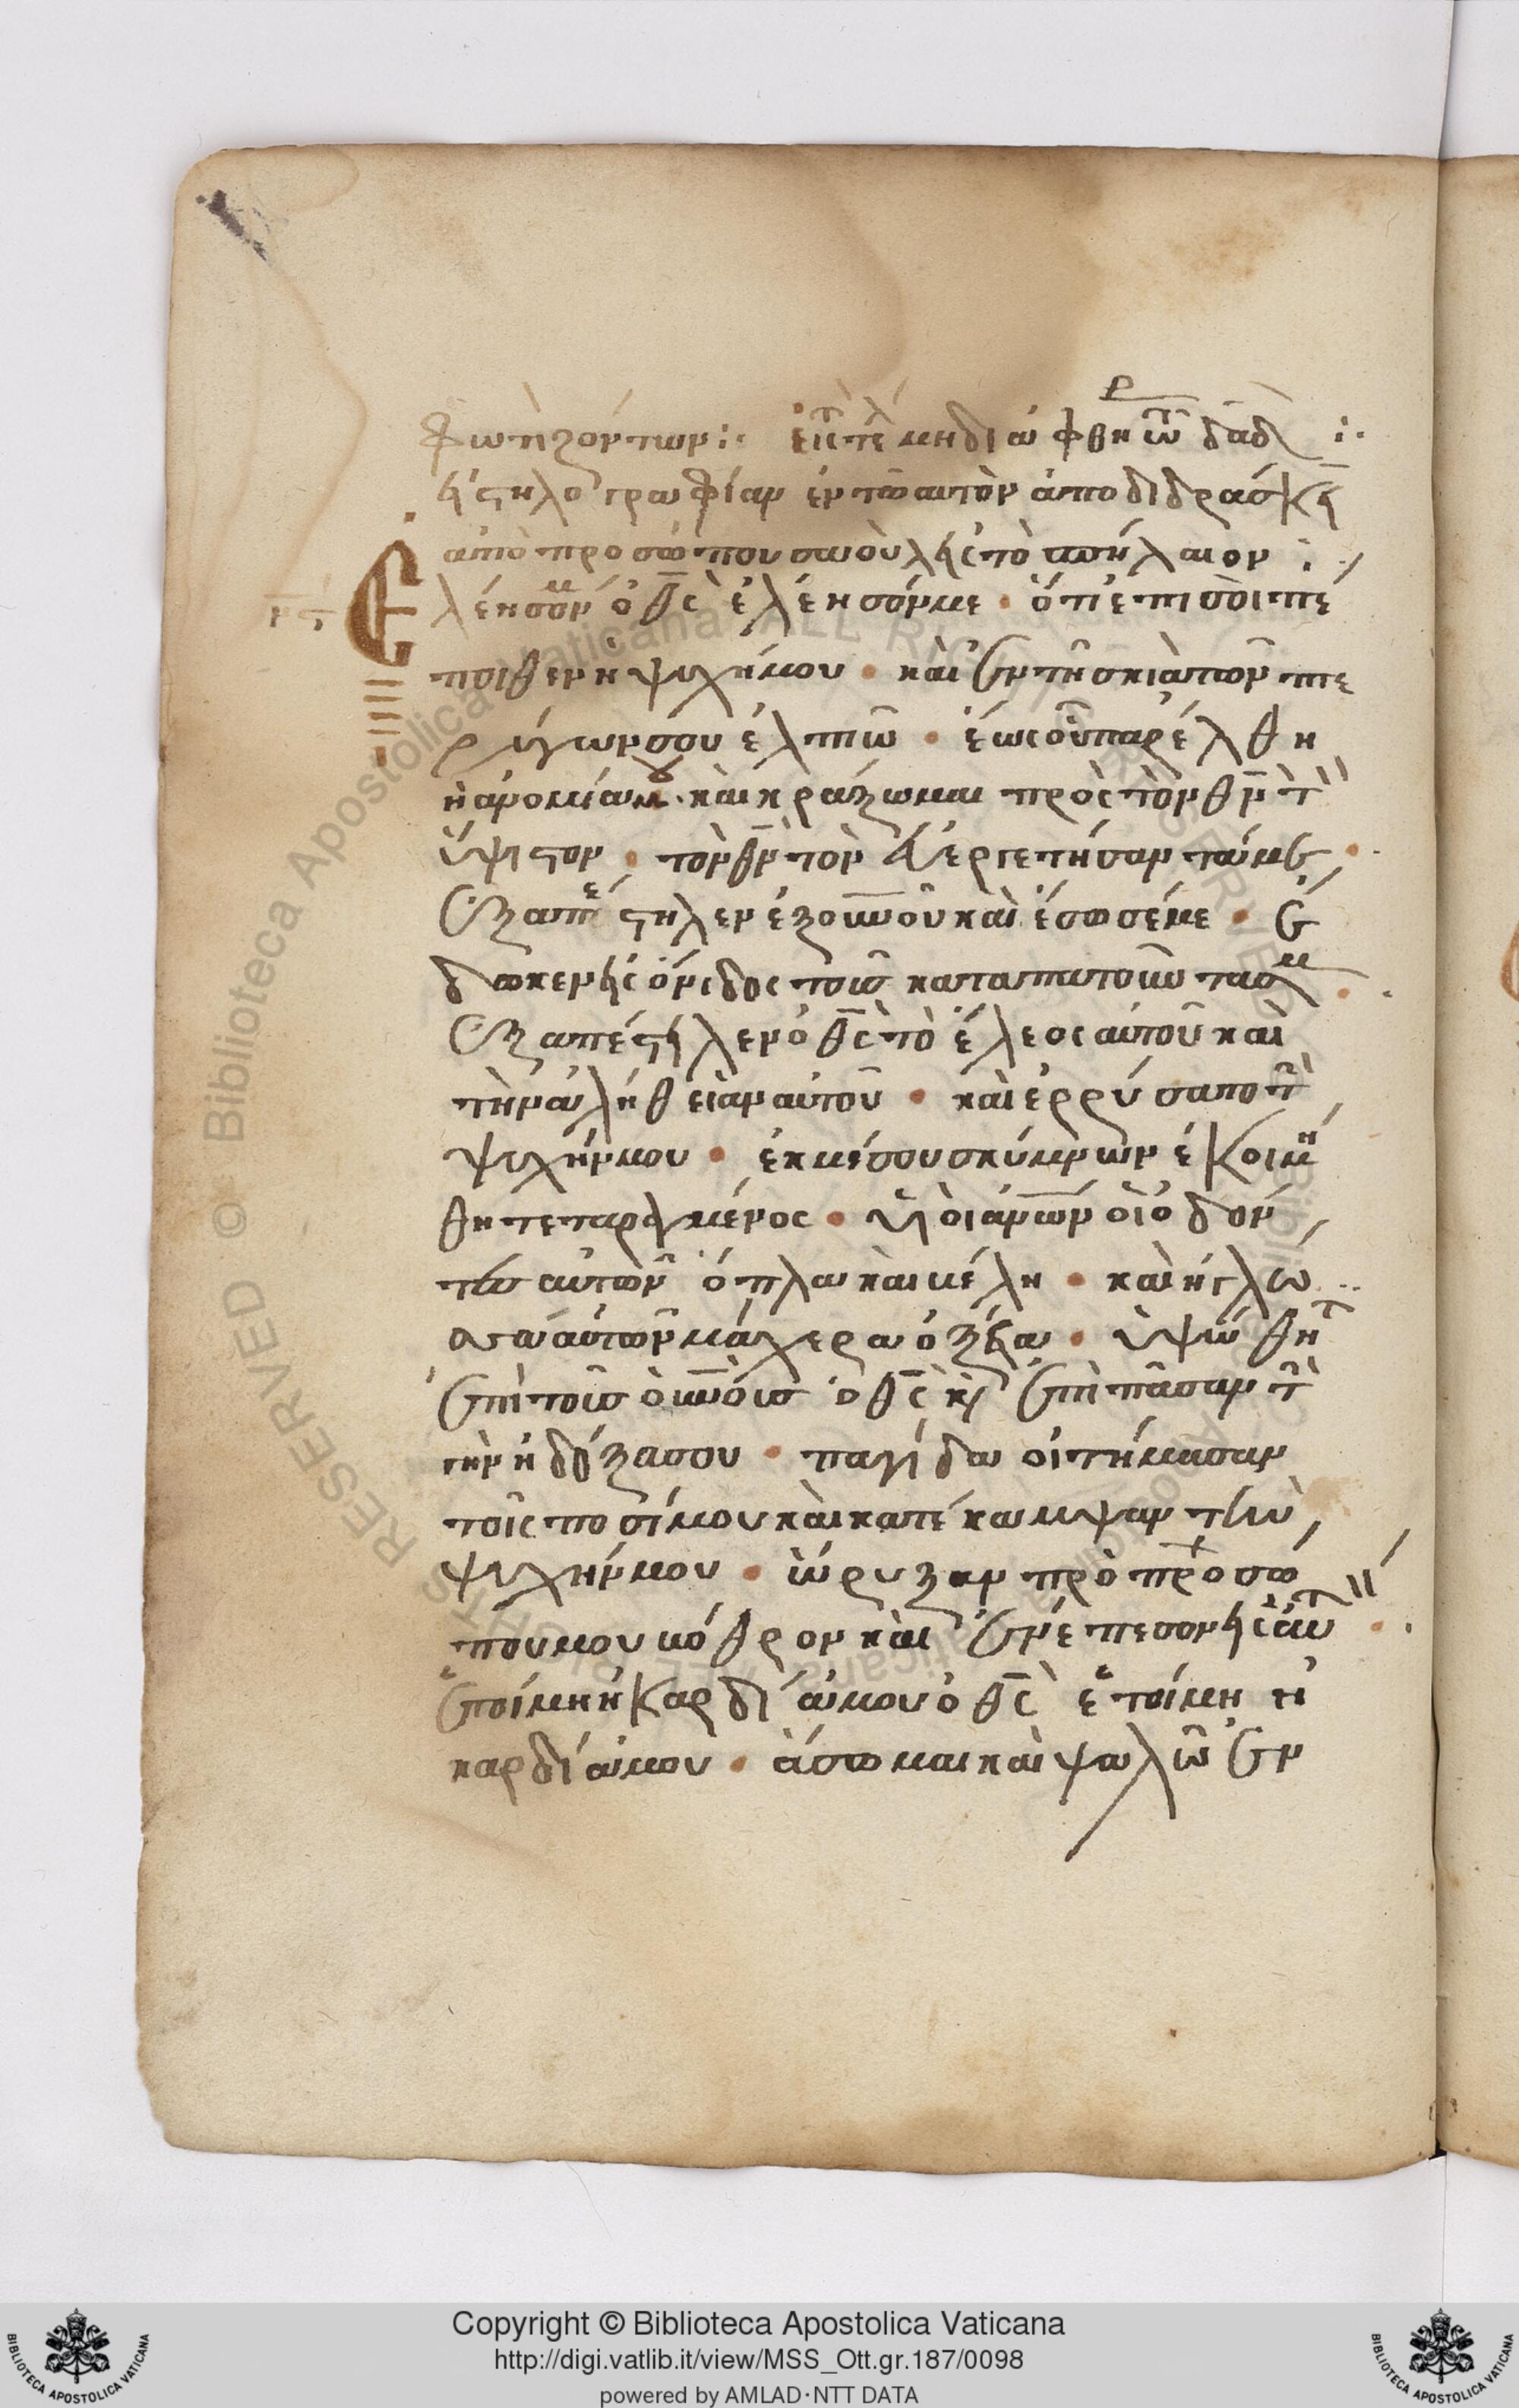 φωτιζόντων:· εἰς τὸ τέλ μὴ διαφθήρ τῶ δαδ :·
εἰς στηλογραφίαν ἐν τῶ αὐτὸν ἀποδιδράσκειν
ἀπὸ προσώπου σαοὺλ εἰς τὸ σπήλαιον :·
νϛ Ελέησόν μ ὁ θς ἐλέησόν με · ὅτι ἐπι σοὶ πέ
ποιθεν ἡ ψυχή μου · καὶ ἐν τῆ σκιᾶ τῶν πτε
ρύγων σου ἐλπιῶ · ἕως οὗ παρέλθη
ἡ ἀνομία · κεκράξωμαι πρὸς τὸν θν τὸν
ὕψιστον · τὸν θν τὸν εὐεργετήσαντά με ·
ἐξαπέστηλεν ἐξ οὐνοῦ καὶ ἔσωσέ με · ἔ
δωκεν εἰς ὄνιδος τοὺς καταπατοῦντας μ ·
ἐξαπέστειλεν ὁ θς τὸ ἔλεος αὐτοῦ καὶ
τὴν ἀλήθειαν αὐτοῦ · καὶ ἐρρύσατο τὴν
ψυχήν μου · ἐκ μέσου σκύμνων ἐκοιμή
θη τεταραγμένος · υἱοὶ ἀνων οἱ ὀδόν
τες αὐτῶν ὅπλα καὶ βέλη · καὶ ἡ γλώ
σσα αὐτῶν μάχερα ὀξεῖα · ὑψώθητ
ἐπὶ τοὺς οὐνοὺς ὁ θς κ ἐπὶ πᾶσαν τὴν
γὴν ἡ δόξα σου · παγίδα οἱτήμασαν
τοῖς ποσί μου καὶ κατέκαμψαν τὴν
ψυχήν μου · ὤρυξαν πρὸ προσώ
που μου βόθρον καὶ ἐνέπεσον εἰς αὐτ ·
ἑτοίμη ἡ καρδία μου ὁ θς ἑτοίμη ἡ
καρδία μου · ἄσωμαι καὶ ψαλῶ ἐν
Copyright © Biblioteca Apostolica Vaticana
http://digi.vatlib.it/view/MSS_Ott.gr.187/0098
powered by AMLAD·NTT DATA
BIBLIOTECA APOSTOLICA VATICANA
BIBLIOTECA APOSTOLICA VATICANA